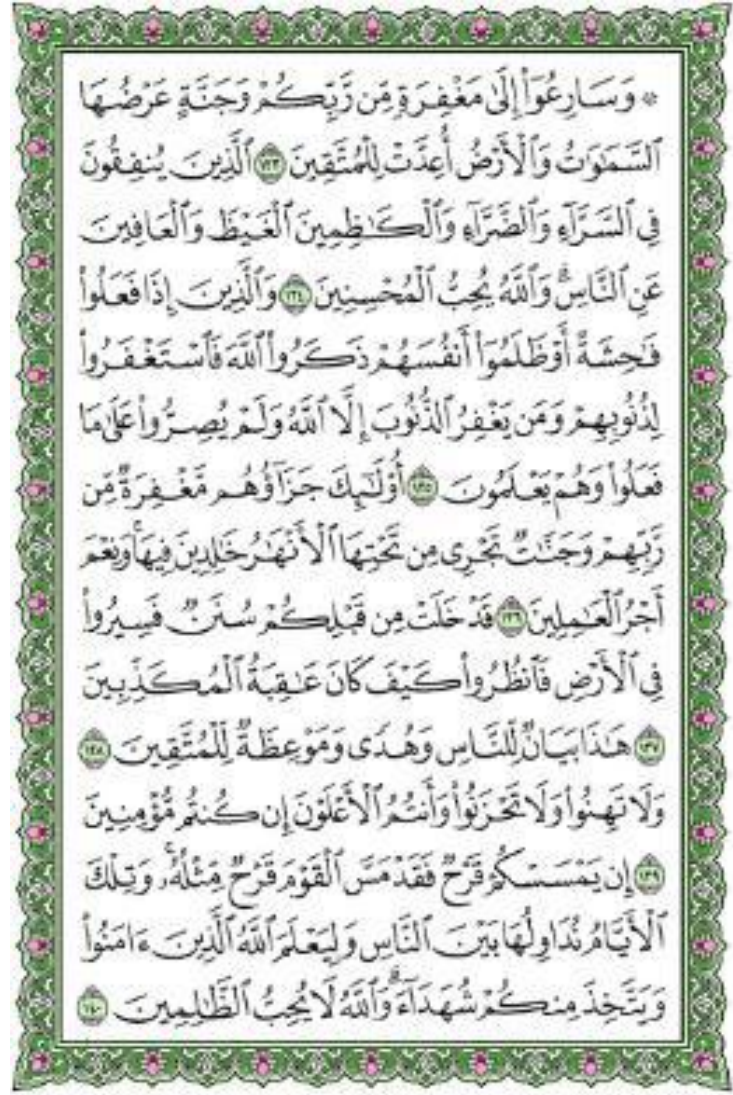 ۞ وَسَارِعُوٓا۟ إِلَىٰ مَغْفِرَةٍ مِّن رَّبِّكُمْ وَجَنَّةٍ عَرْضُهَا
ٱلسَّمَٰوَٰتُ وَٱلْأَرْضُ أُعِدَّتْ لِلْمُتَّقِينَ ١٣٣ ٱلَّذِينَ يُنفِقُونَ
فِى ٱلسَّرَّآءِ وَٱلضَّرَّآءِ وَٱلْكَٰظِمِينَ ٱلْغَيْظَ وَٱلْعَافِينَ
عَنِ ٱلنَّاسِ ۗ وَٱللَّهُ يُحِبُّ ٱلْمُحْسِنِينَ ١٣٤ وَٱلَّذِينَ إِذَا فَعَلُوا۟
فَٰحِشَةً أَوْ ظَلَمُوٓا۟ أَنفُسَهُمْ ذَكَرُوا۟ ٱللَّهَ فَٱسْتَغْفَرُوا۟
لِذُنُوبِهِمْ وَمَن يَغْفِرُ ٱلذُّنُوبَ إِلَّا ٱللَّهُ وَلَمْ يُصِرُّوا۟ عَلَىٰ مَا
فَعَلُوا۟ وَهُمْ يَعْلَمُونَ ١٣٥ أُو۟لَٰٓئِكَ جَزَآؤُهُم مَّغْفِرَةٌ مِّن
رَّبِّهِمْ وَجَنَّٰتٌ تَجْرِى مِن تَحْتِهَا ٱلْأَنْهَٰرُ خَٰلِدِينَ فِيهَا ۚ وَنِعْمَ
أَجْرُ ٱلْعَٰمِلِينَ ١٣٦ قَدْ خَلَتْ مِن قَبْلِكُمْ سُنَنٌ فَسِيرُوا۟
فِى ٱلْأَرْضِ فَٱنظُرُوا۟ كَيْفَ كَانَ عَٰقِبَةُ ٱلْمُكَذِّبِينَ
١٣٧ هَٰذَا بَيَانٌ لِّلنَّاسِ وَهُدًى وَمَوْعِظَةٌ لِّلْمُتَّقِينَ ١٣٨
وَلَا تَهِنُوا۟ وَلَا تَحْزَنُوا۟ وَأَنتُمُ ٱلْأَعْلَوْنَ إِن كُنتُم مُّؤْمِنِينَ
١٣٩ إِن يَمْسَسْكُمْ قَرْحٌ فَقَدْ مَسَّ ٱلْقَوْمَ قَرْحٌ مِّثْلُهُۥ ۚ وَتِلْكَ
ٱلْأَيَّامُ نُدَاوِلُهَا بَيْنَ ٱلنَّاسِ وَلِيَعْلَمَ ٱللَّهُ ٱلَّذِينَ ءَامَنُوا۟
وَيَتَّخِذَ مِنكُمْ شُهَدَآءَ ۗ وَٱللَّهُ لَا يُحِبُّ ٱلظَّٰلِمِينَ ١٤٠